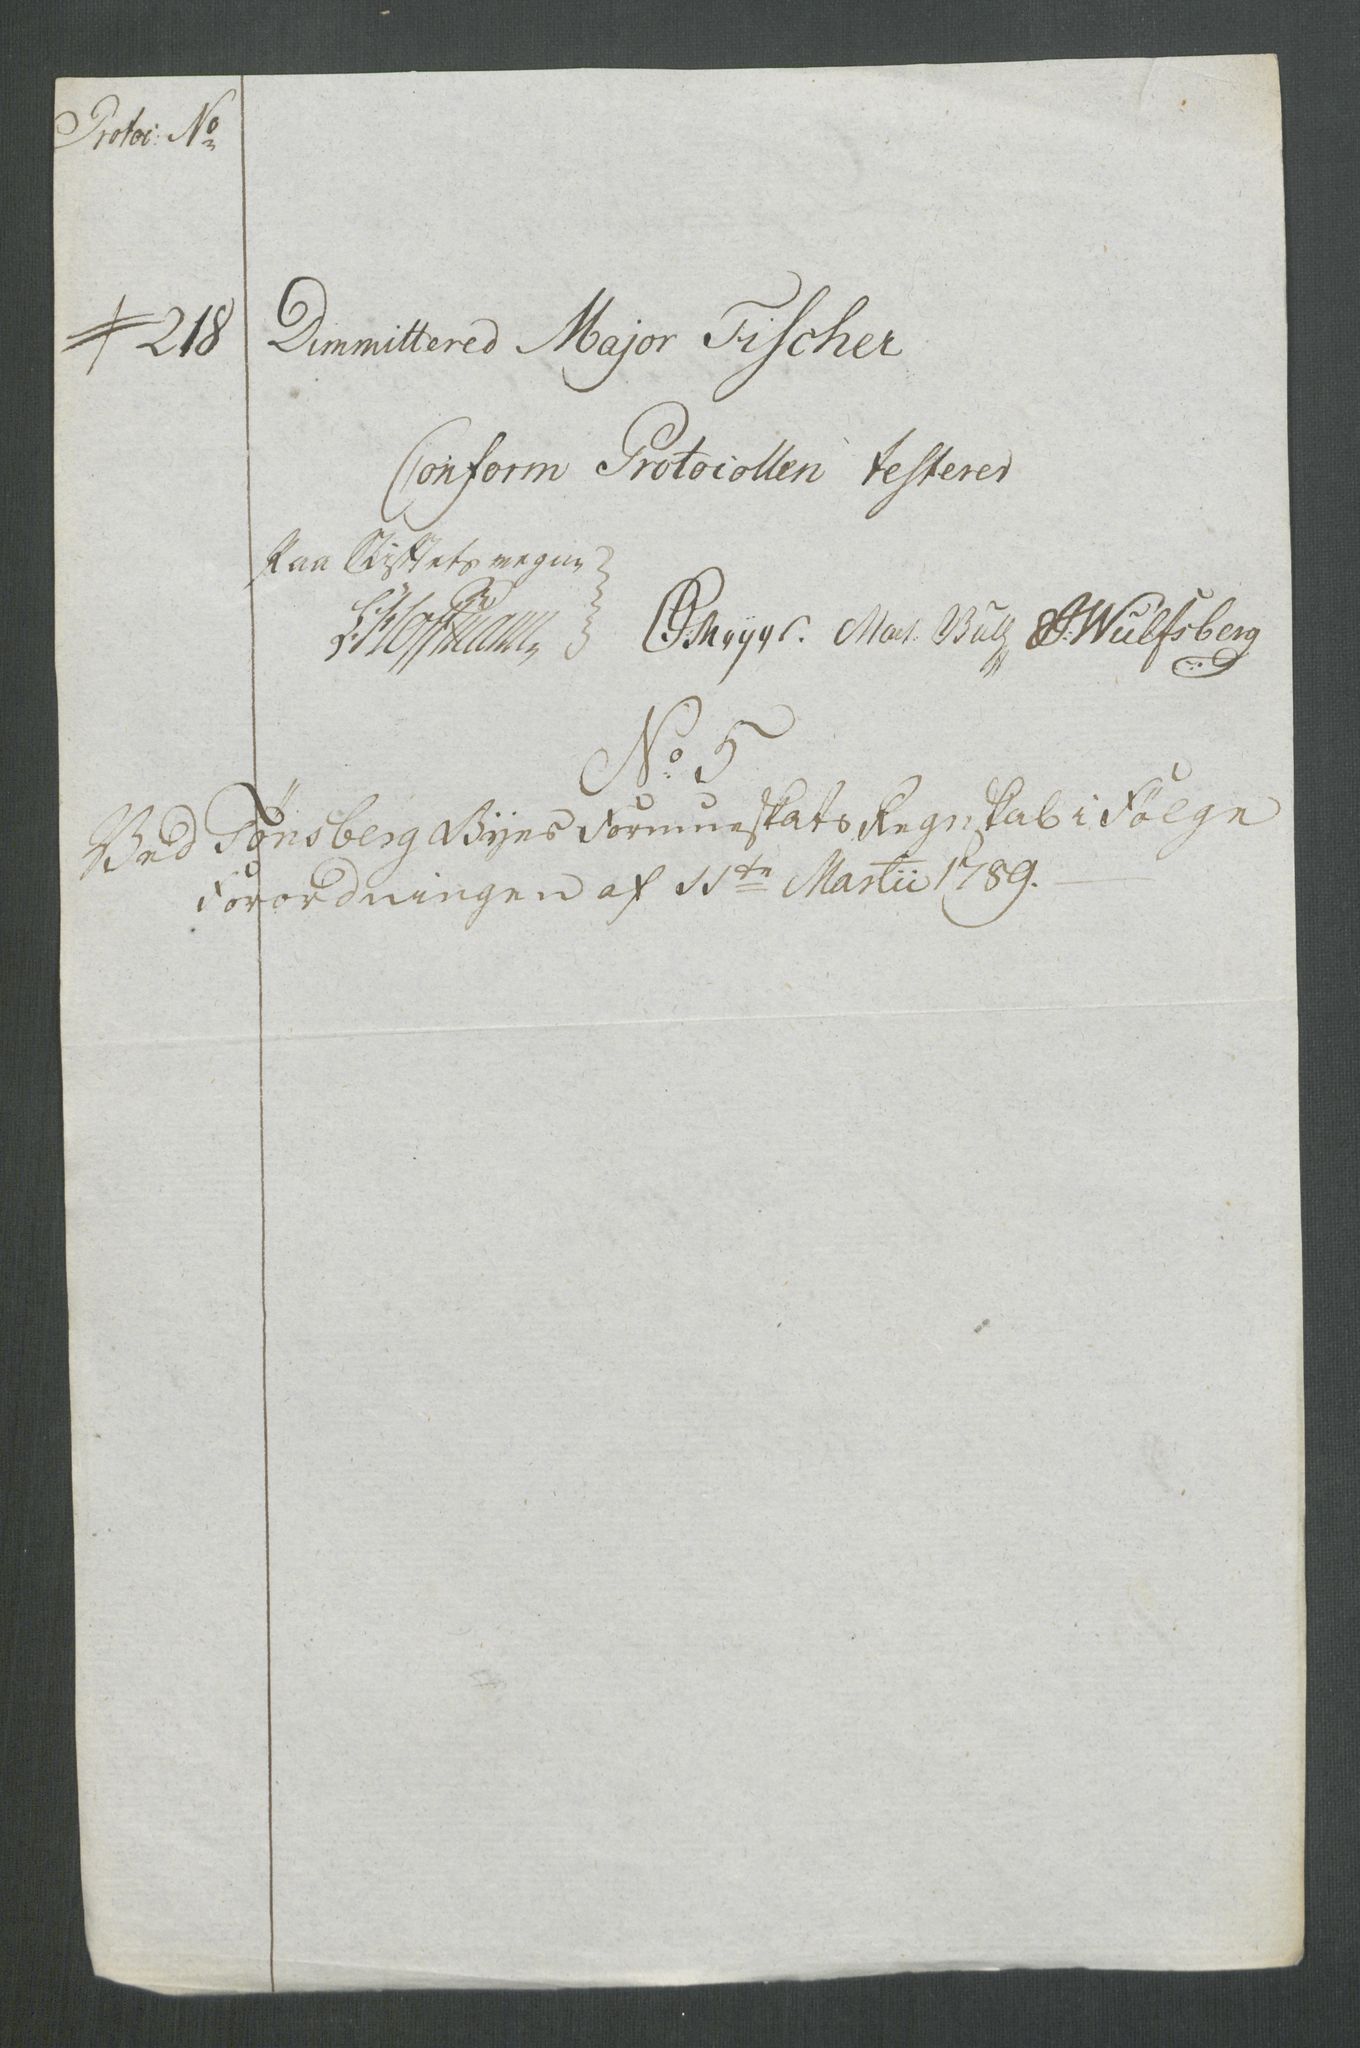 Protoc: No
218 Dimmittered Major Fischer
Conform Protocollen testerer
Paa Stiftets vegne
Hoffmann
Mart. Bull Wulfsberg
No 5
Ved Tönsberg Byes Formueskats Regnskab i Fölge
Forordningen af 11te Martii 1789.